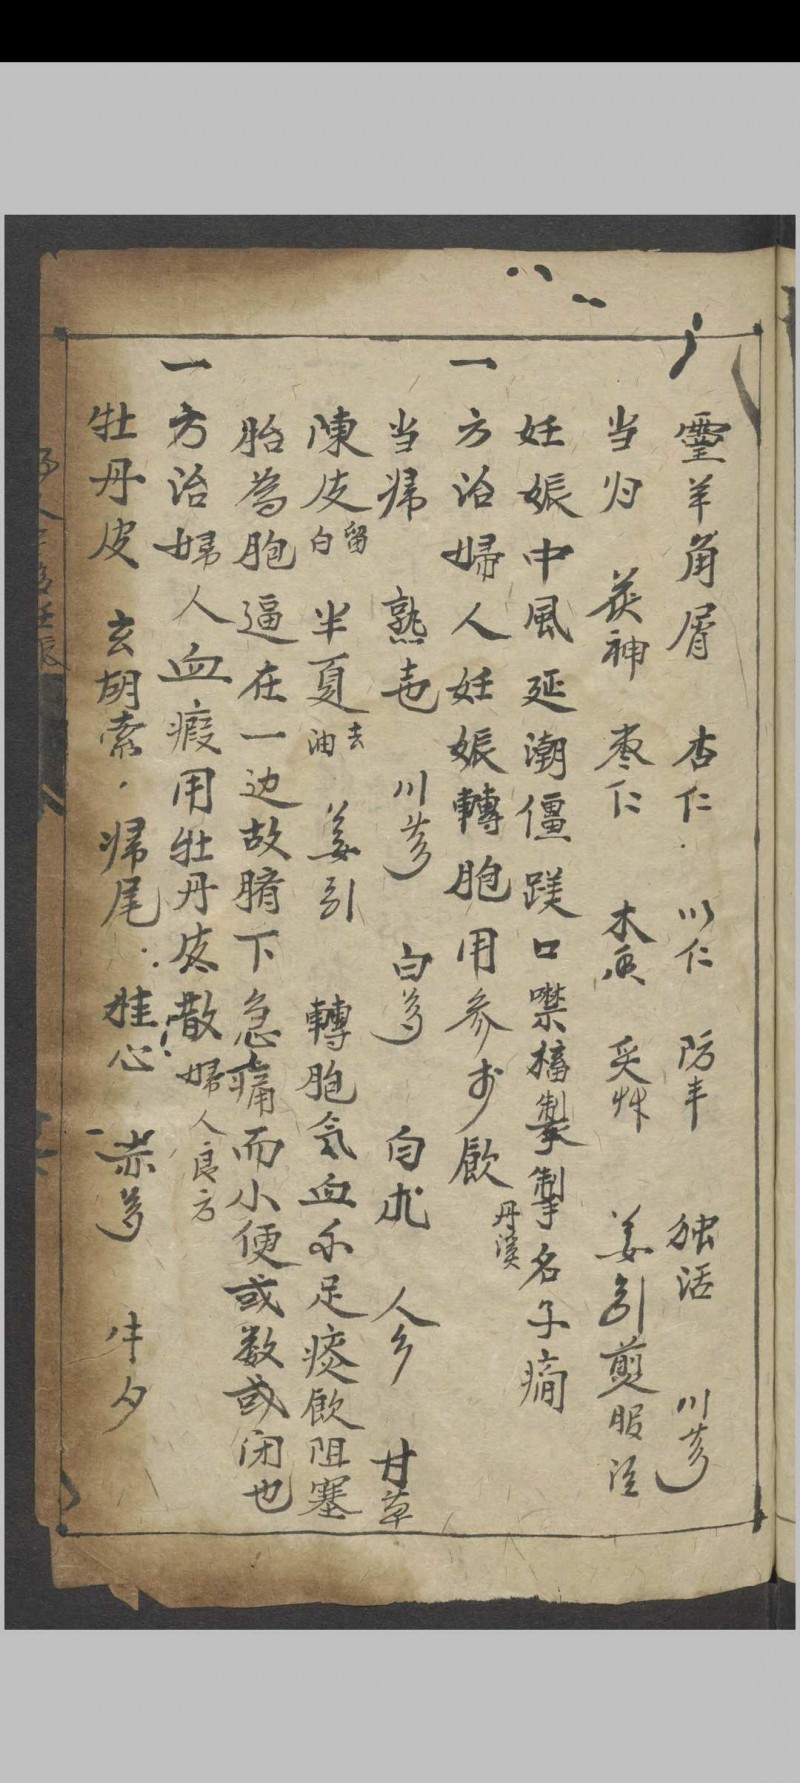 羊角屑 杏仁 以仁 防丰 独活 川芎
当归 茯神 枣仁 木 炙艸 姜引煎服
妊娠中風延潮僵 口噤搐 掣名子癎
一方治婦人妊娠轉胞用参朮飲 丹溪
当帰 熟 川芎 白芍 白朮 人 甘草
陳皮 留白 半夏 去油 姜引 轉胞気血不足痰飲阻塞
胎為胞逼在一边故臍下急痛而小便或数或闭也
一方治婦人血瘕用牡丹皮散 婦人良方
牡丹皮 玄胡索 帰尾 桂心 赤芍 牛夕